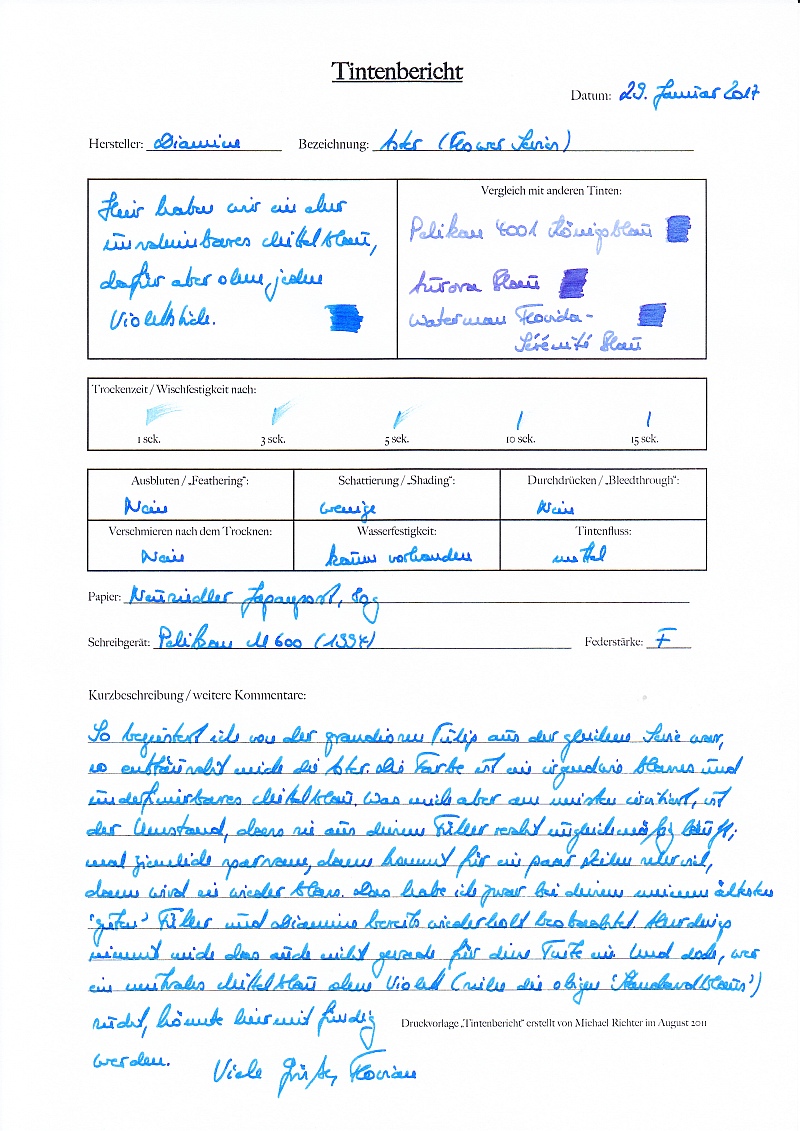 Tintenbericht
Datum: 29. Januar 2017
Hersteller: Diamine Bezeichnung: Aster (Flower Series)
Hier haben wir ein eher
undefinierbares Mittelblau,
dafür aber ohne jeden
Violettstich.
Vergleich mit anderen Tinten:
Pelikan 4001 Königsblau
Aurora Blau
Waterman Florida-
Sérénité Blau
Trockenzeit / Wischfestigkeit nach:
1 sek. 3 sek. 5 sek. 10 sek. 15 sek.
Ausbluten / „Feathering“: Schattierung / „Shading“: Durchdrücken / „Bleedthrough“:
Nein wenige Nein
Verschmieren nach dem Trocknen: Wasserfestigkeit: Tintenfluss:
Nein kaum vorhanden mittel
Papier: Neusiedler Japanpost, 80g
Schreibgerät: Pelikan M 600 (1997) Federstärke: F
Kurzbeschreibung / weitere Kommentare:
So begeistert ich von der grandiosen Tulip aus der gleichen Serie war,
so enttäuscht mich die Aster. Die Farbe ist ein irgendwie blasses und
undefinierbares Mittelblau. Was mich aber am meisten irritiert, ist
der Umstand, dass sie aus diesem Füller recht ungleichmäßig läuft;
mal ziemlich sparsam, dann kommt für ein paar Zeilen sehr viel,
dann wird sie wieder blass. Das habe ich zwar bei diesem meinem ältesten
'guten' Füller und Diamine bereits wiederholt beobachtet. Allerdings
nimmt mich das auch nicht gerade für diese Tinte ein. Und doch, wer
ein neutrales Mittelblau ohne Violett (siehe die obigen 'Standardblaus')
sucht, könnte hiermit fündig
werden.
Druckvorlage „Tintenbericht“ erstellt von Michael Richter im August 2011
Viele Grüße, Florian